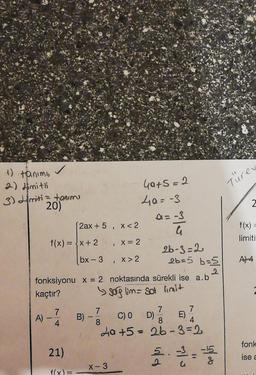 1) tanımlı ✓
2) limitli
3) limiti = tanımı
20)
4a+5=2
4a=-3
a=-3/4
f(x) = { 2ax + 5 , x < 2
x + 2 , x = 2
bx – 3 , x > 2
2b-3=2
2b=5 b=5/2
fonksiyonu x = 2 noktasında sürekli ise a.b
kaçtır?
sağ lim = sol limit
A) – 7/4 B) – 7/8 C) 0 D) 7/8 E) 7/4
4a+5 = 2b-3=2
21)
5/2 . -3/4 = -15/8
x – 3
f(x) =
Türev
2
f(x) =
limiti
A) 4
fonk
ise a